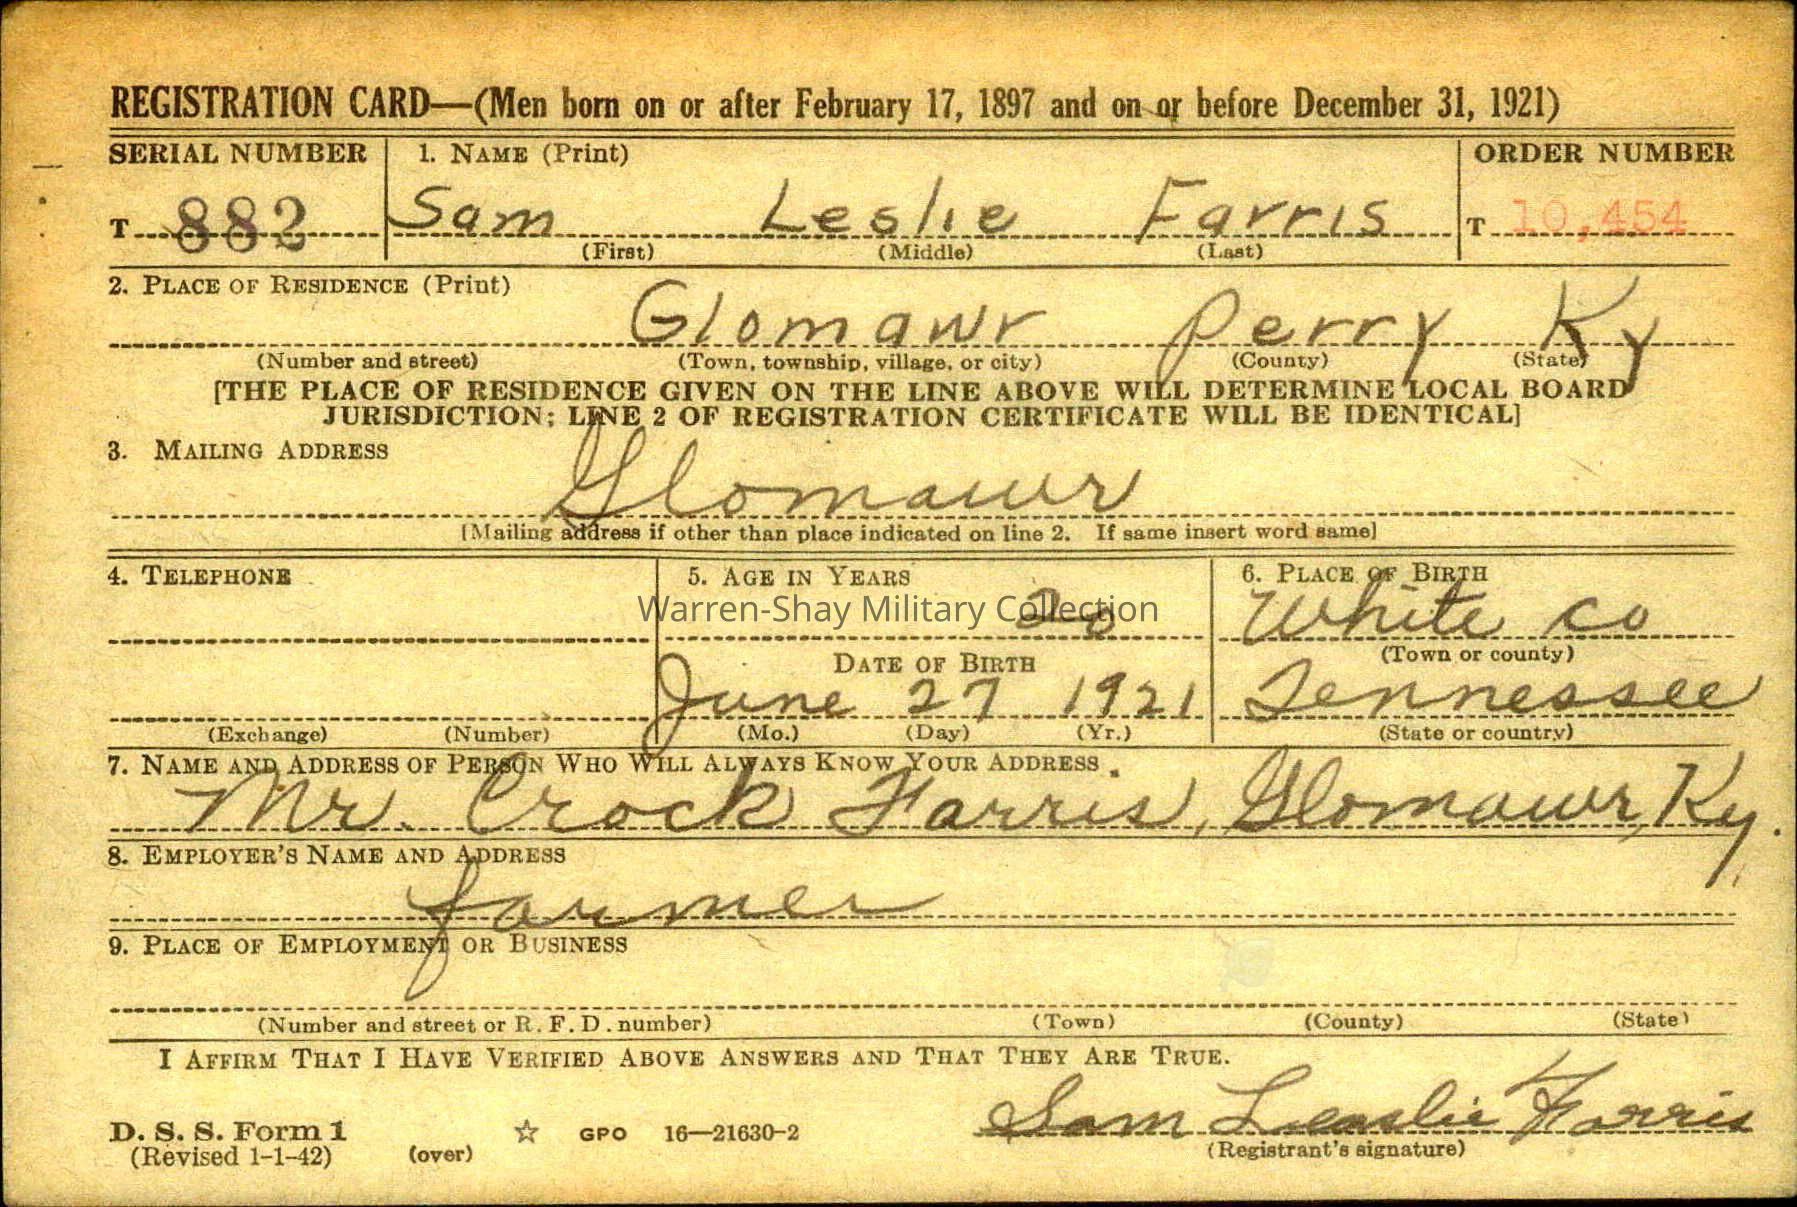 REGISTRATION CARD—(Men born on or after February 17, 1897 and on or before December 31, 1921)
SERIAL NUMBER 1. NAME (Print) ORDER NUMBER
T 882 Sam Leslie Farris T 10,454
(First) (Middle) (Last)
2. PLACE OF RESIDENCE (Print)
Glomawr Perry Ky
(Number and street) (Town, township, village, or city) (County) (State)
[THE PLACE OF RESIDENCE GIVEN ON THE LINE ABOVE WILL DETERMINE LOCAL BOARD
JURISDICTION; LINE 2 OF REGISTRATION CERTIFICATE WILL BE IDENTICAL]
3. MAILING ADDRESS
Glomawr
[Mailing address if other than place indicated on line 2. If same insert word same]
4. TELEPHONE 5. AGE IN YEARS 6. PLACE OF BIRTH
Warren-Shay Military Collection
20 White Co
DATE OF BIRTH (Town or county)
June 27 1921 Tennessee
(Exchange) (Number) (Mo.) (Day) (Yr.) (State or country)
7. NAME AND ADDRESS OF PERSON WHO WILL ALWAYS KNOW YOUR ADDRESS
Mr. Crock Farris, Glomawr, Ky.
8. EMPLOYER'S NAME AND ADDRESS
farmer
9. PLACE OF EMPLOYMENT OR BUSINESS
(Number and street or R. F. D. number) (Town) (County) (State)
I AFFIRM THAT I HAVE VERIFIED ABOVE ANSWERS AND THAT THEY ARE TRUE.
Sam Leaslie Farris
D. S. S. Form 1 ☆ GPO 16—21630-2
(Revised 1-1-42) (over) (Registrant's signature)